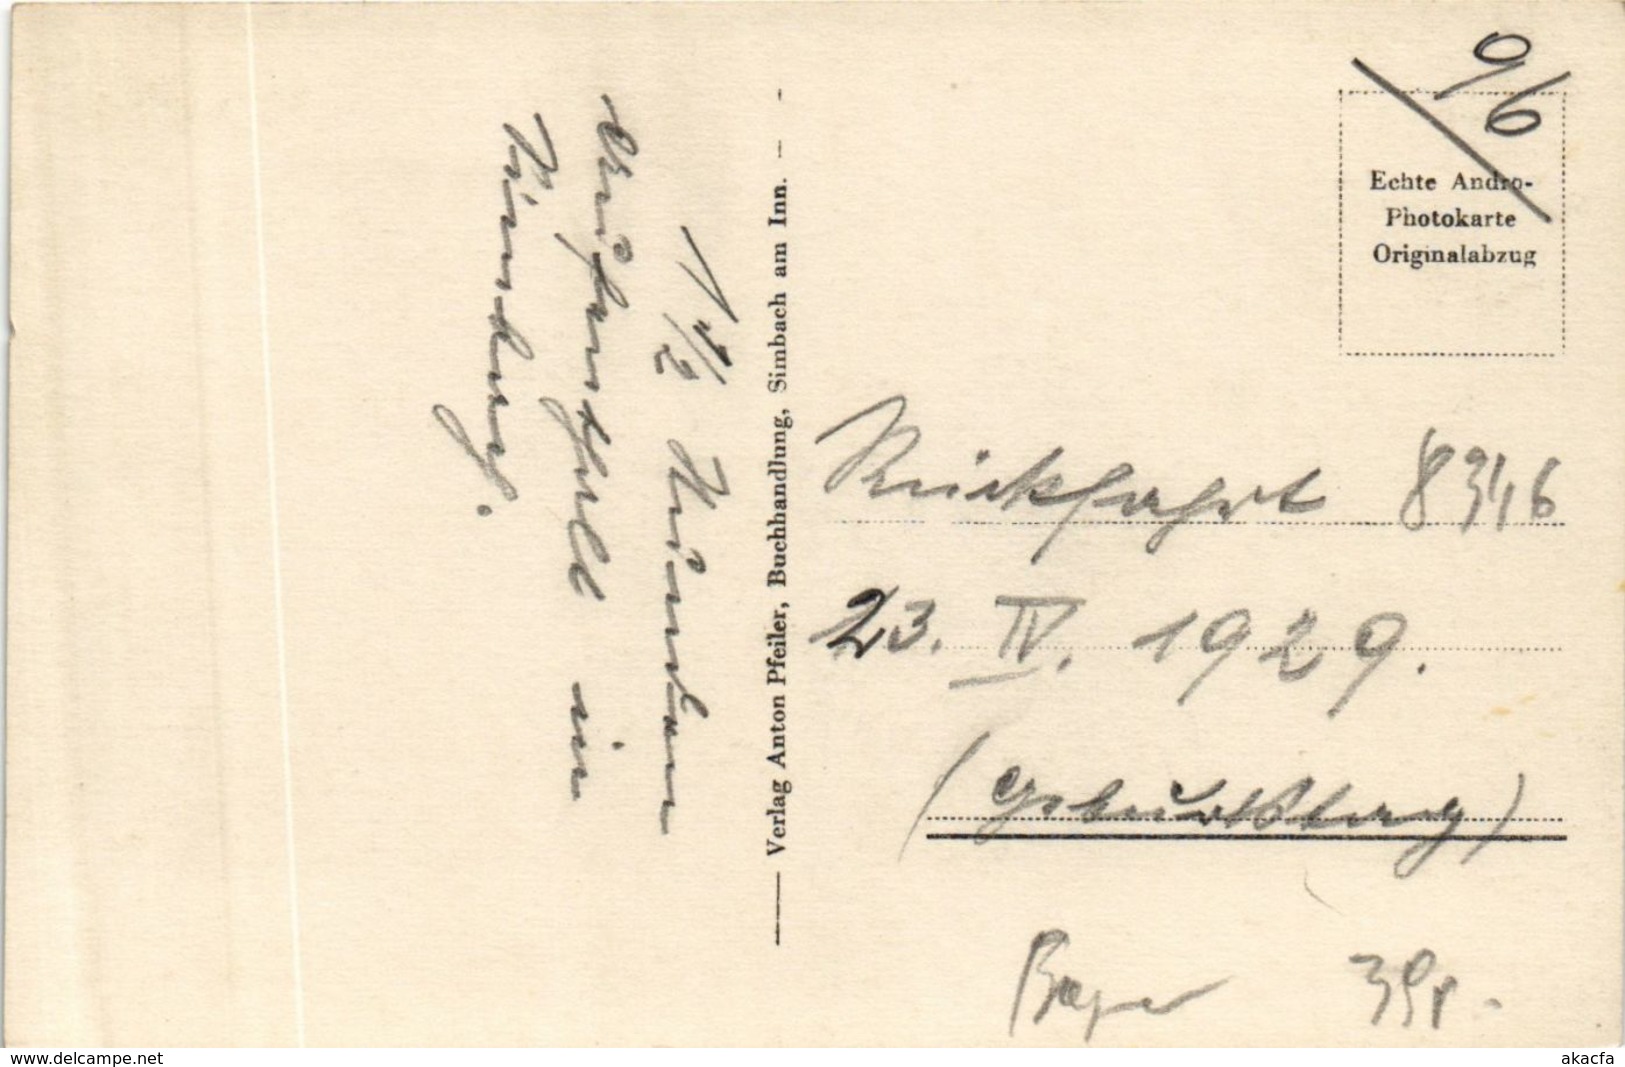 1 1/2 Stunden
Aufenthalt in
Nürnberg.
Verlag Anton Pfeiler, Buchhandlung, Simbach am Inn.
96
Echte Andro-
Photokarte
Originalabzug
Rückfahrt 8346
23. IV. 1929.
(Geburtstag)
Bayer
www.delcampe.net
akacfa